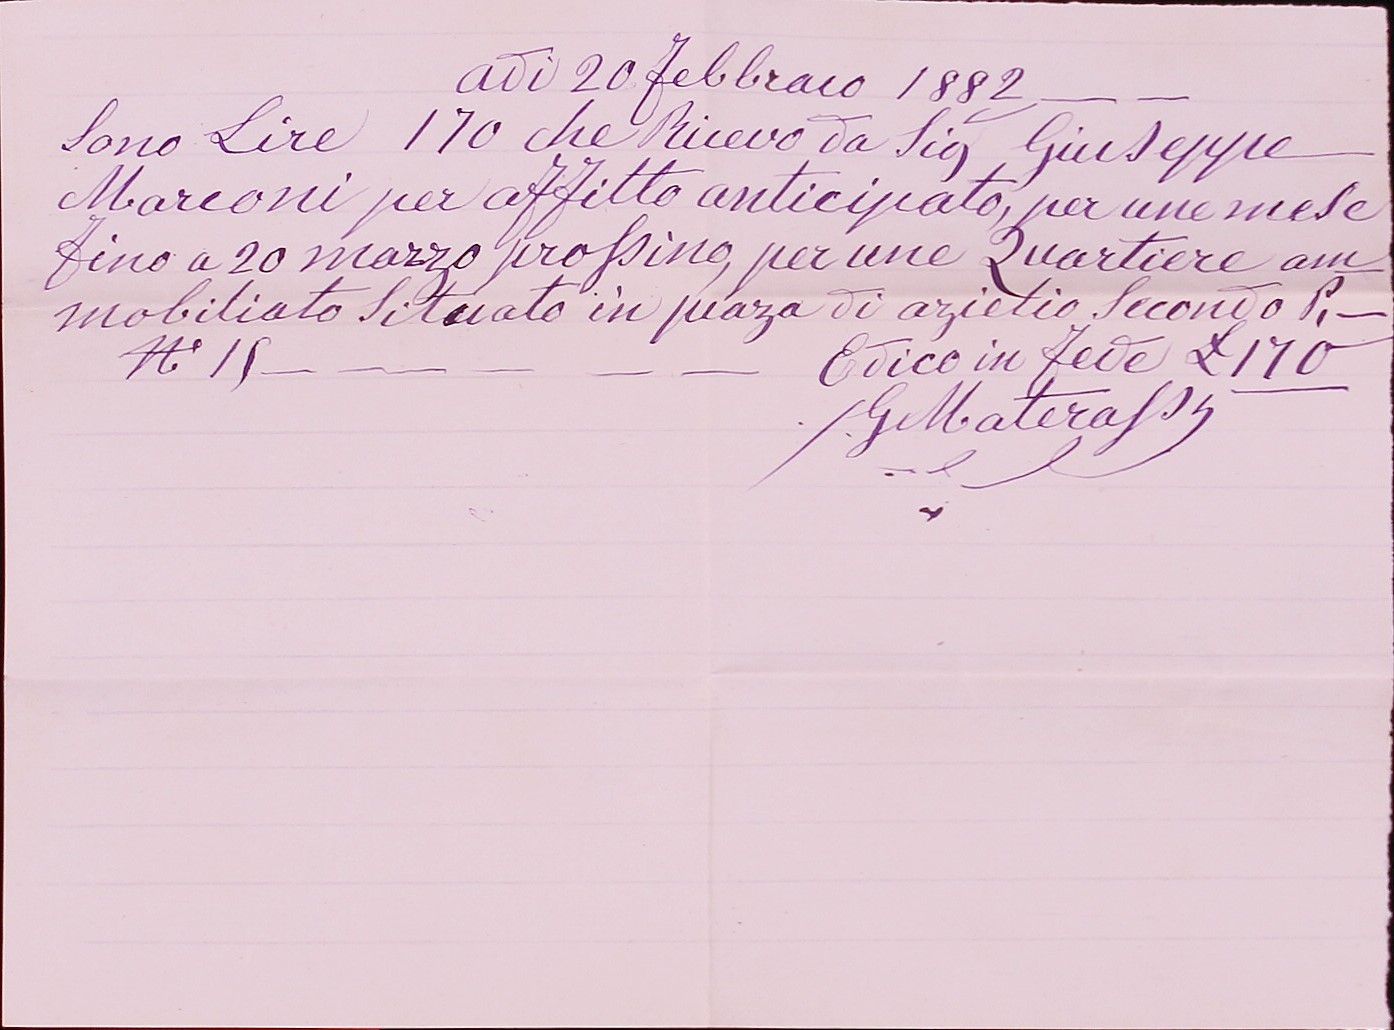 adi 20 febbraio 1882 — —
Sono Lire 170 che Ricevo da Sig Giuseppe
Marconi per affitto anticipato, per une mese
fino a 20 marzo prossino, per une Quartiere am
mobiliato Situato in piaza di azielio Secondo P. —
No 15 — — — — — — Edico in fede £ 170
G Materassi